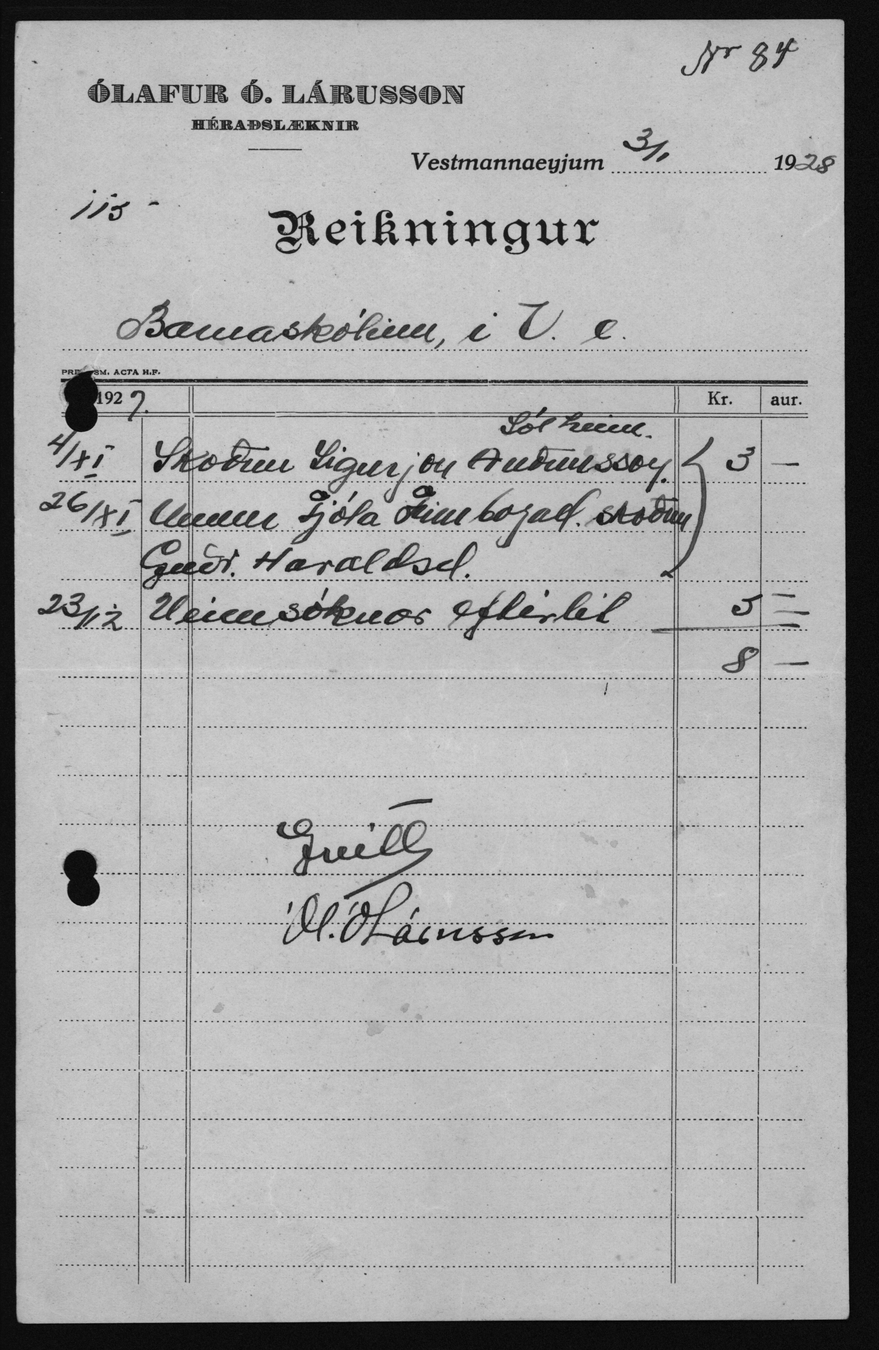 Nr 84
ÓLAFUR Ó. LÁRUSSON
HÉRAÐSLÆKNIR
Vestmannaeyjum 3/1 1928
115 -
Reikningur
Barnaskólinn, i V. e.
SM. ACTA H.F.
1927.
Kr. aur.
Sólheim.
4/XI Skoðun Sigurjón Auðunsson. 3 —
26/XI Unnur Fjóla Finnbogad. skoðun
Guðr. Haraldsd.
23/12 Heimsóknar eftirlit 5 —
8 —
Greitt
Ól. Ó Lárusson